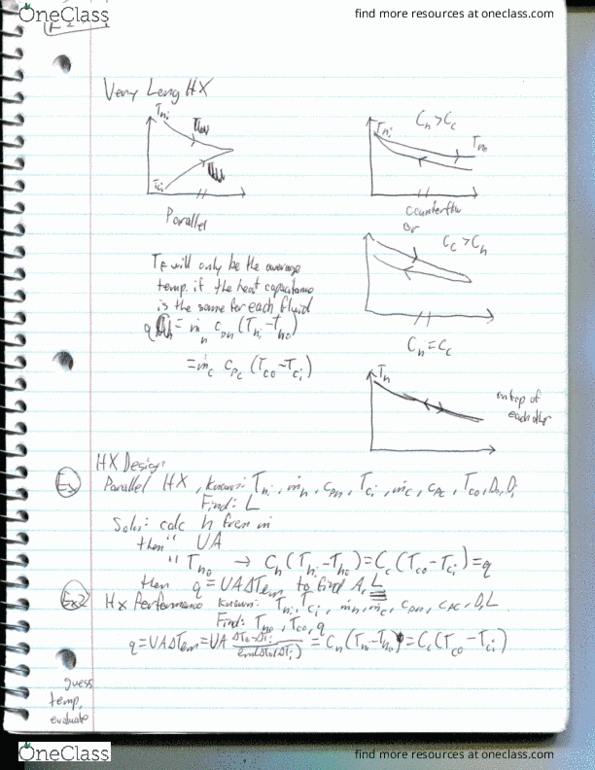 OneClass
find more resources at oneclass.com
Very Long HX
Tni
Tci
Parallel
Cn > Cc
Tni
Tno
counterflow
or
Cc > Cn
Cn = Cc
Tn
on top of
each other
TF will only be the average
temp. if the heat capacitance
is the same for each fluid
q = ṁn cpn (Tni - Tno)
= ṁc cpc (Tco - Tci)
HX Design
Ex
Parallel HX, Known: Tni, ṁn, cpn, Tci, ṁc, cpc, Tco, Do, Di
Find: L
Soln: calc h from in
then " UA
" Tno → Cn (Tni - Tno) = Cc (Tco - Tci) = q
then q = UAΔTem to find A, L
Ex2
HX Performance Known: Tni, Tci, ṁn, ṁc, cpn, cpc, D, L
Find: Tno, Tco, q
q = UAΔTem = UA (ΔTo - ΔTi) / (ln(ΔTo/ΔTi)) = Cn (Tni - Tno) = Cc (Tco - Tci)
guess
temp,
evaluate
OneClass
find more resources at oneclass.com